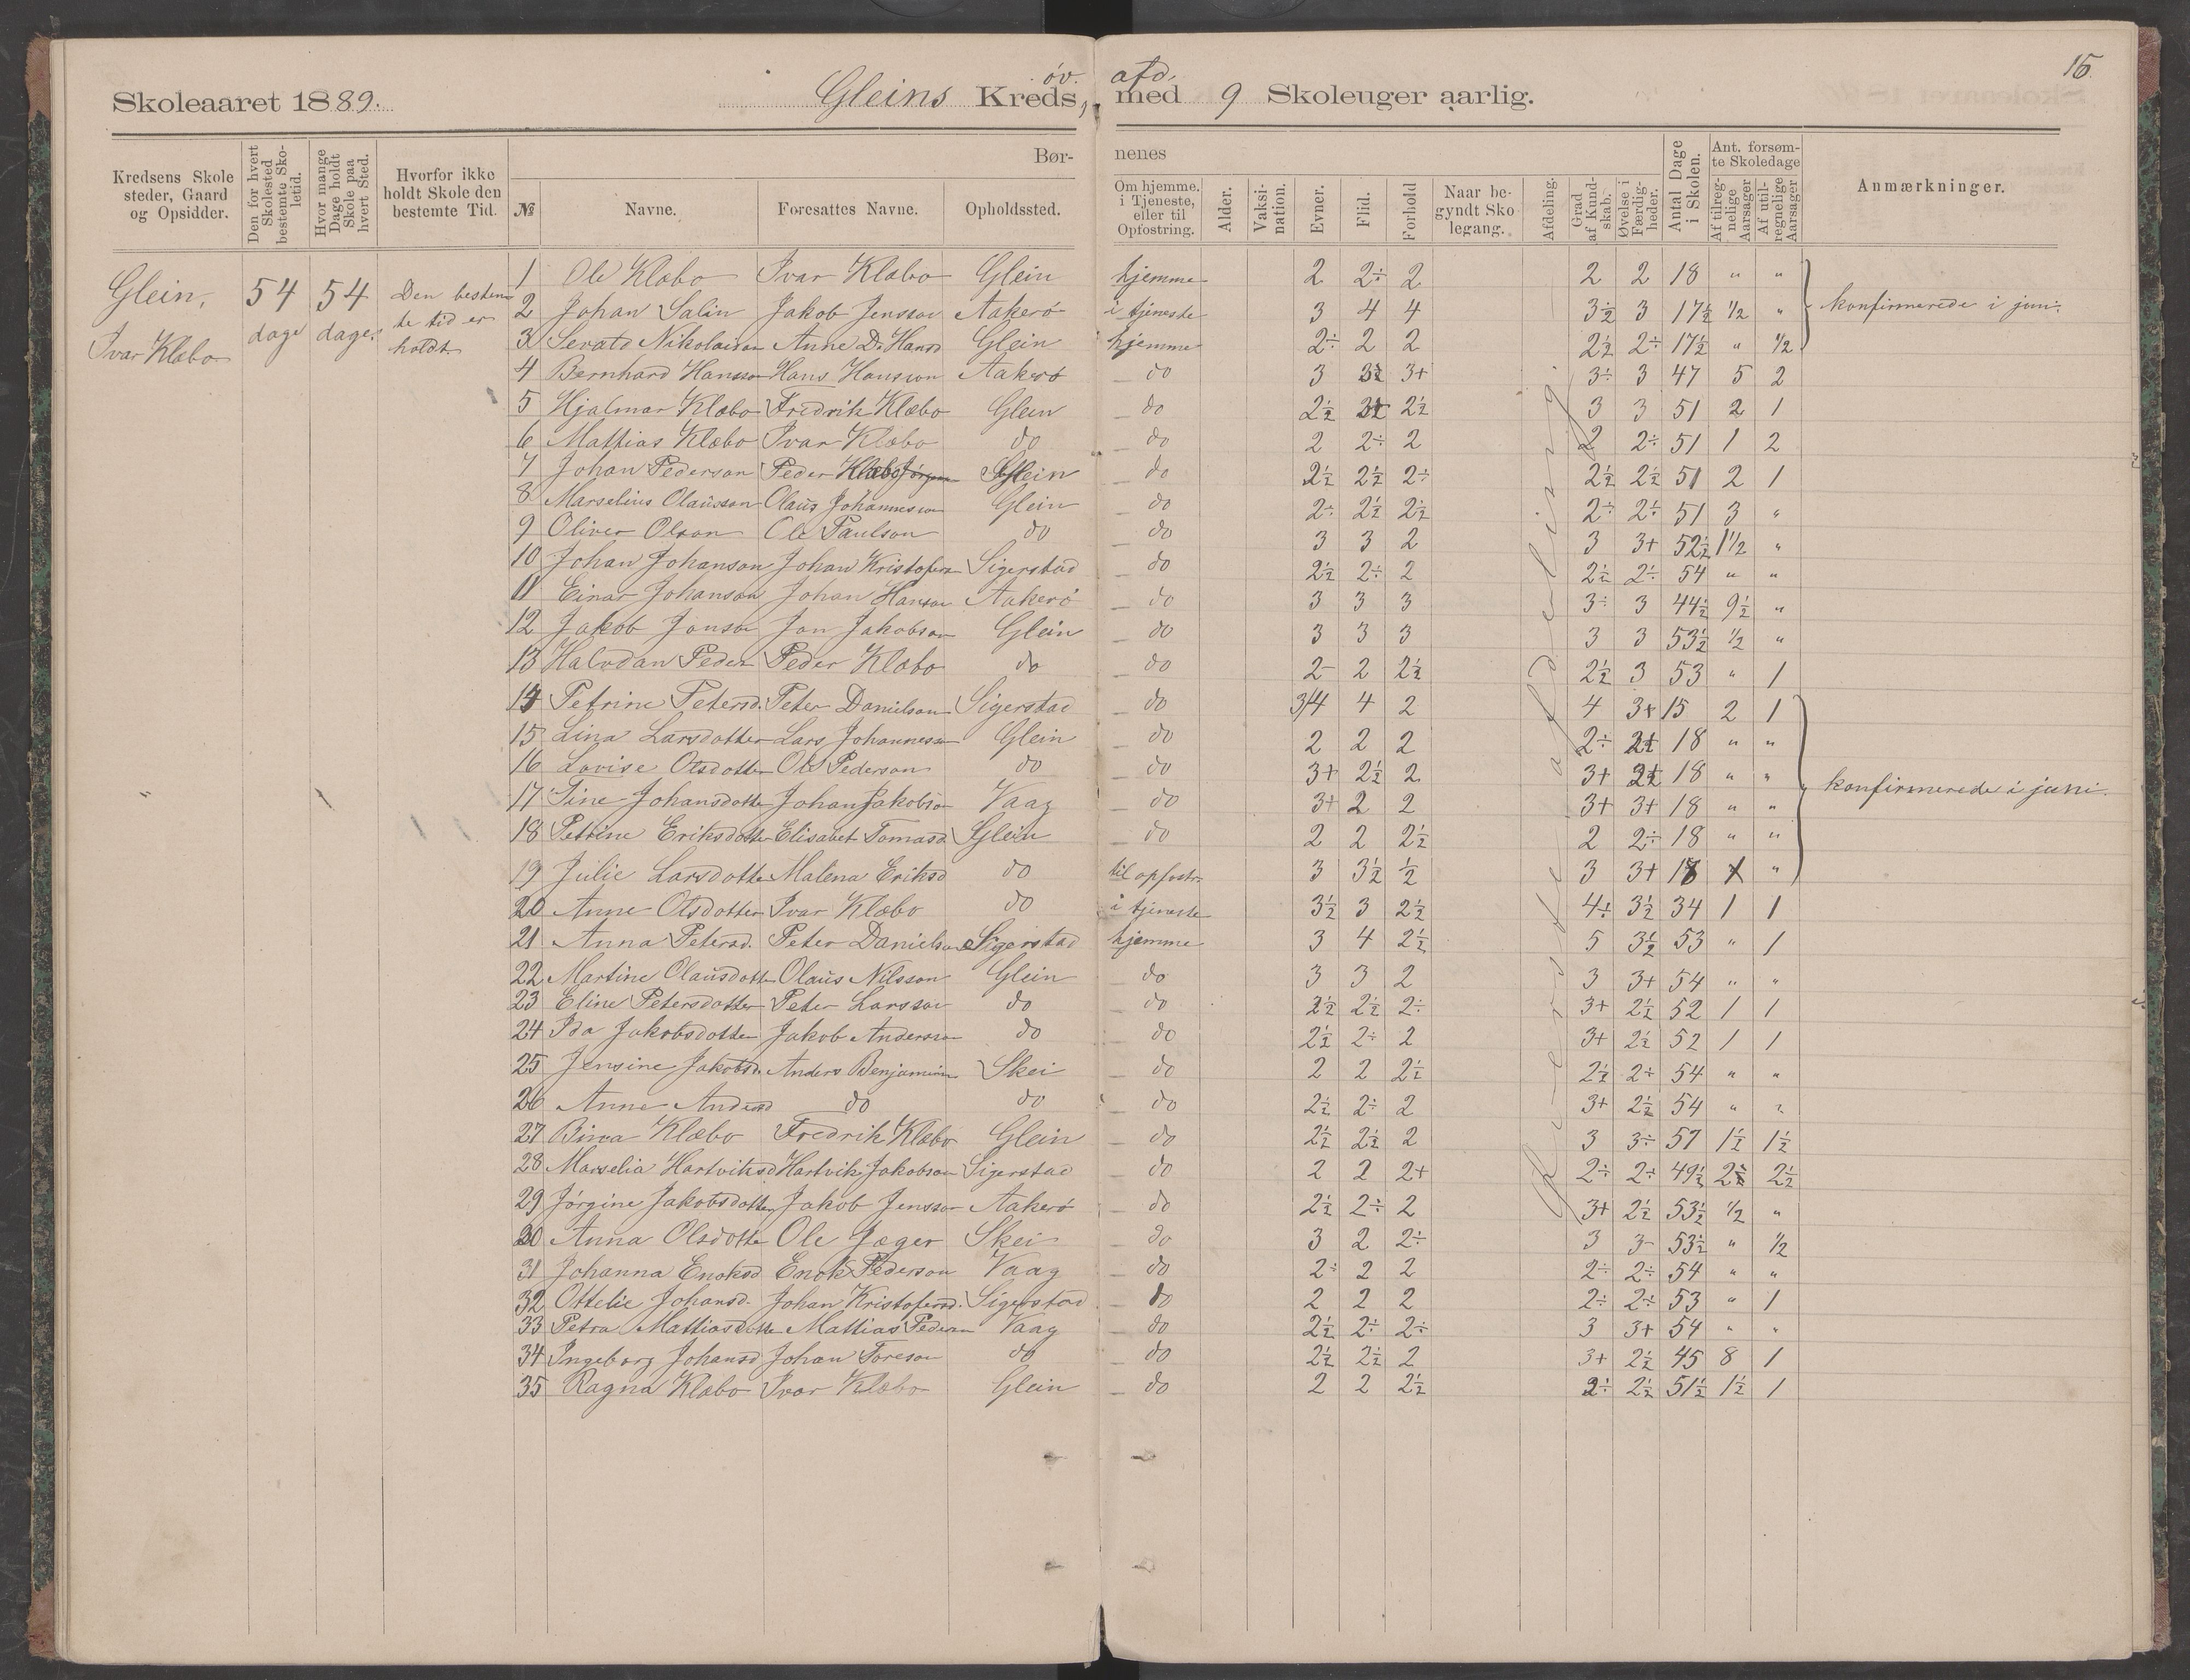 15.
Skoleaaret 1889. Gleins Kreds, øv. afd. med 9 Skoleuger aarlig.
Kredsens Skolesteder, Gaard og Opsidder. Den for hvert Skolested bestemte Skoletid. Hvor mange Dage holdt Skole paa hvert Sted. Hvorfor ikke holdt Skole den bestemte Tid. Børnenes
№ Navne. Foresattes Navne. Opholdssted. Om hjemme, i Tjeneste, eller til Opfostring. Alder. Vaksination. Evner. Flid. Forhold Naar begyndt Skolegang. Afdeling. Grad af Kundskab. Øvelse i Færdigheder. Antal Dage i Skolen. Ant. forsømte Skoledage Af tilregnelige Aarsager Af utilregnelige Aarsager Anmærkninger.
Glein, Ivar Klæbo 54 dage 54 dage. Den bestemte tid er holdt
øverste afdeling
1 Ole Klæbo Ivar Klæbo Glein hjemme 2 2÷ 2 2 2 18 " "
2 Johan Salin Jakob Jensson Aakerø i tjeneste 3 4 4 3½ 3 17½ ½ " konfirmerede i juni.
3 Nikolaison Anne D. Hansd Glein hjemme 2÷ 2 2 2½ 2÷ 17½ " ½
4 Bernhard Hansson Hans Hansson Aakerø do 3 3½ 3+ 3÷ 3 47 5 2
5 Hjalmar Klæbo Fredrik Klæbo Glein do 2½ 2½ 3 3 51 2 1
6 Mattias Klæbo Ivar Klæbo do do 2 2÷ 2 2 2÷ 51 1 2
7 Johan Pederson Peder Glein do 2½ 2½ 2÷ 2½ 2½ 51 2 1
8 Marselius Olausson Olaus Johannesson Glein do 2÷ 2½ 2½ 2÷ 2÷ 51 3 "
9 Oliver Olson Ole Paulson do do 3 3 2 3 3+ 52½ 1½ "
10 Johan Johanson Johan Kristofersn Sigerstad do 2½ 2÷ 2 2½ 2÷ 54 " "
11 Einar Johanson Johan Hanson Aakerø do 3 3 3 3÷ 3 44½ 9½ "
12 Jakob Jonson Jon Jakobson Glein do 3 3 3 3 3 53½ ½ "
13 Halvdan Peders Peder Klæbo do do 2- 2 2½ 2½ 3 53 " 1
14 Petrine Petersd. Peter Danielson Sigerstad do 3/4 4 2 4 3+ 15 2 1
15 Lina Larsdotter Lars Johanneson Glein do 2 2 2 2÷ 2½ 18 " "
16 Lovise Olsdotter Ole Pederson do do 3+ 2½ 2 3+ 2½ 18 " "
17 Sine Johansdotte Johan Jakobson Vaag do 3+ 2 2 3+ 3+ 18 " " konfirmerede i juni.
18 Petrine Eriksdotter Elisabet Tomasd Glein do 2 2 2½ 2 2÷ 18 " "
19 Julie Larsdotte Malena Eriksd do til opfostr. 3 3½ ½ 3 3+ 18 "
20 Anne Olsdotter Ivar Klæbo do i tjeneste 3½ 3 2½ 4÷ 3½ 34 1 1
21 Anna Petersd. Peter Danielson Sigerstad hjemme 3 4 2½ 5 3½ 53 " 1
22 Martine Olausdotte Olaus Nilsson Glein do 3 3 2 3 3+ 54 " "
23 Eline Petersdotter Peter Larsson do do 2½ 2½ 2÷ 3+ 2½ 52 1 1
24 Ida Jakobsdotter Jakob Andersson do do 2½ 2÷ 2 3+ 2½ 52 1 1
25 Jensine Jakobsd. Anders Benjaminsn Skei do 2 2 2½ 2½ 2÷ 54 " "
26 Anne Andersd do do do 2½ 2÷ 2 3+ 2½ 54 " "
27 Klæbo Fredrik Klæbo Glein do 2½ 2½ 2 3 3÷ 51 1½ 1½
28 Marselia Hartviksd Hartvik Jakobson Sigerstad do 2 2 2+ 2÷ 2÷ 49½ 2½ 2½
29 Jørgine Jakobsdotter Jakob Jensson Aakerø do 2½ 2÷ 2 3+ 2½ 53½ ½ "
30 Anna Olsdotte Ole Jæger Skei do 3 2 2÷ 3 3- 53½ " ½
31 Johanna Enoksd Enok Pederson Vaag do 2÷ 2 2 2÷ 2÷ 54 " "
32 Ottelie Johansd. Johan Kristofersn. Sigerstad do 2 2 2 2÷ 2÷ 53 " 1
33 Petra Mattiasdotte Mattias Pederson Vaag do 2½ 2÷ 2÷ 3 3+ 54 " "
34 Ingeborg Johansd Johan Toreson do do 2½ 2½ 2 3+ 2½ 45 8 1
35 Ragna Klæbo Ivar Klæbo Glein do 2 2 2½ 2÷ 2½ 51½ 1½ 1